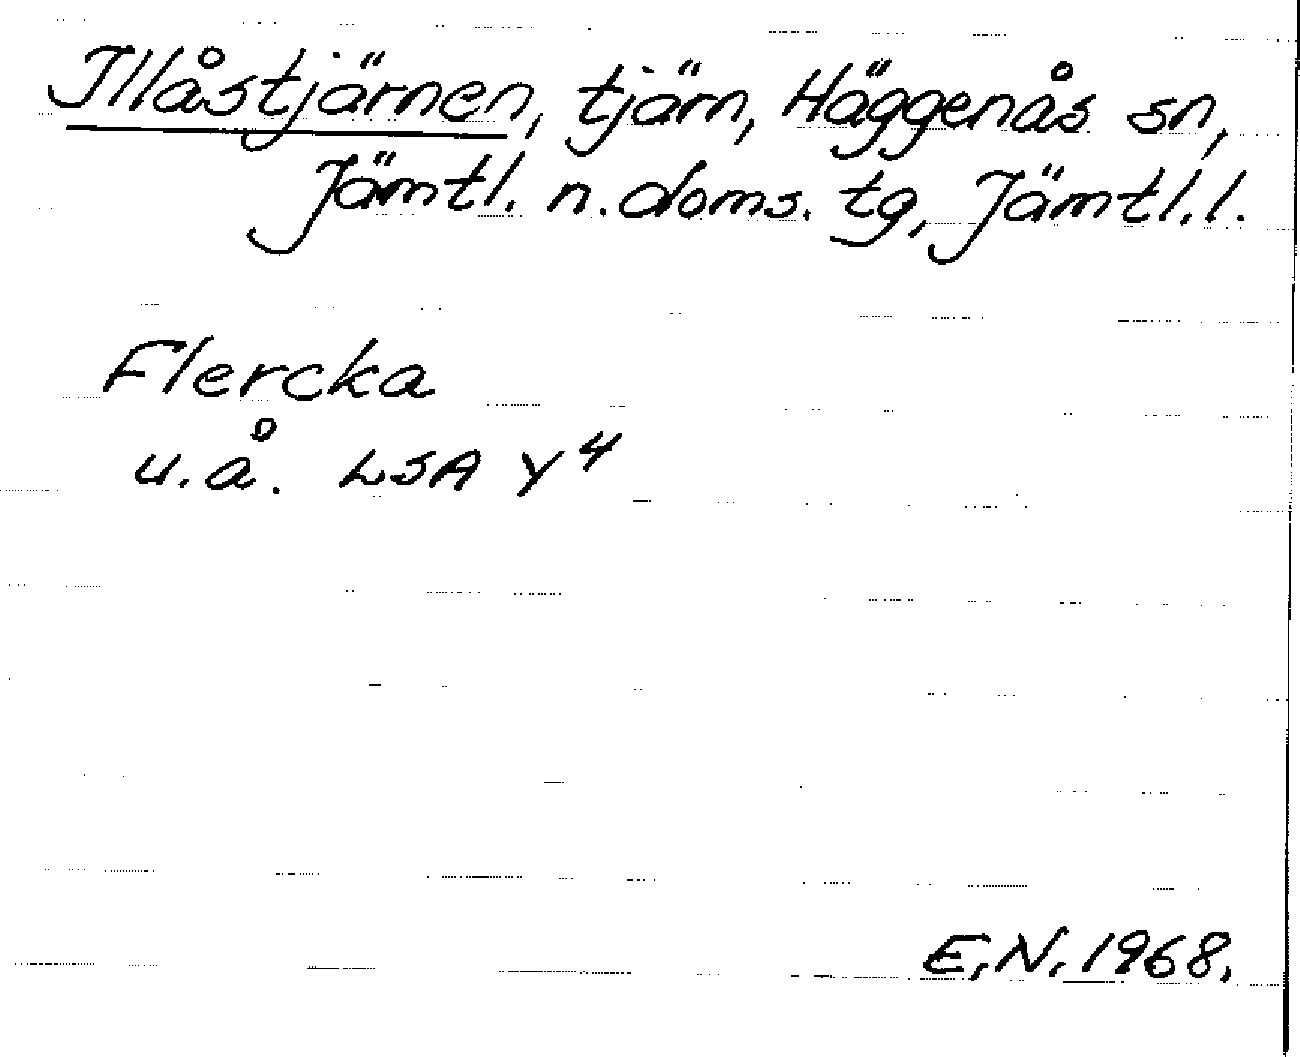 Illåstjärnen, tjärn, Häggenås sn,
Jämtl. n. doms. tg, Jämtl. l.
Flercka
u. å. LSA Y4
E.N. 1968.